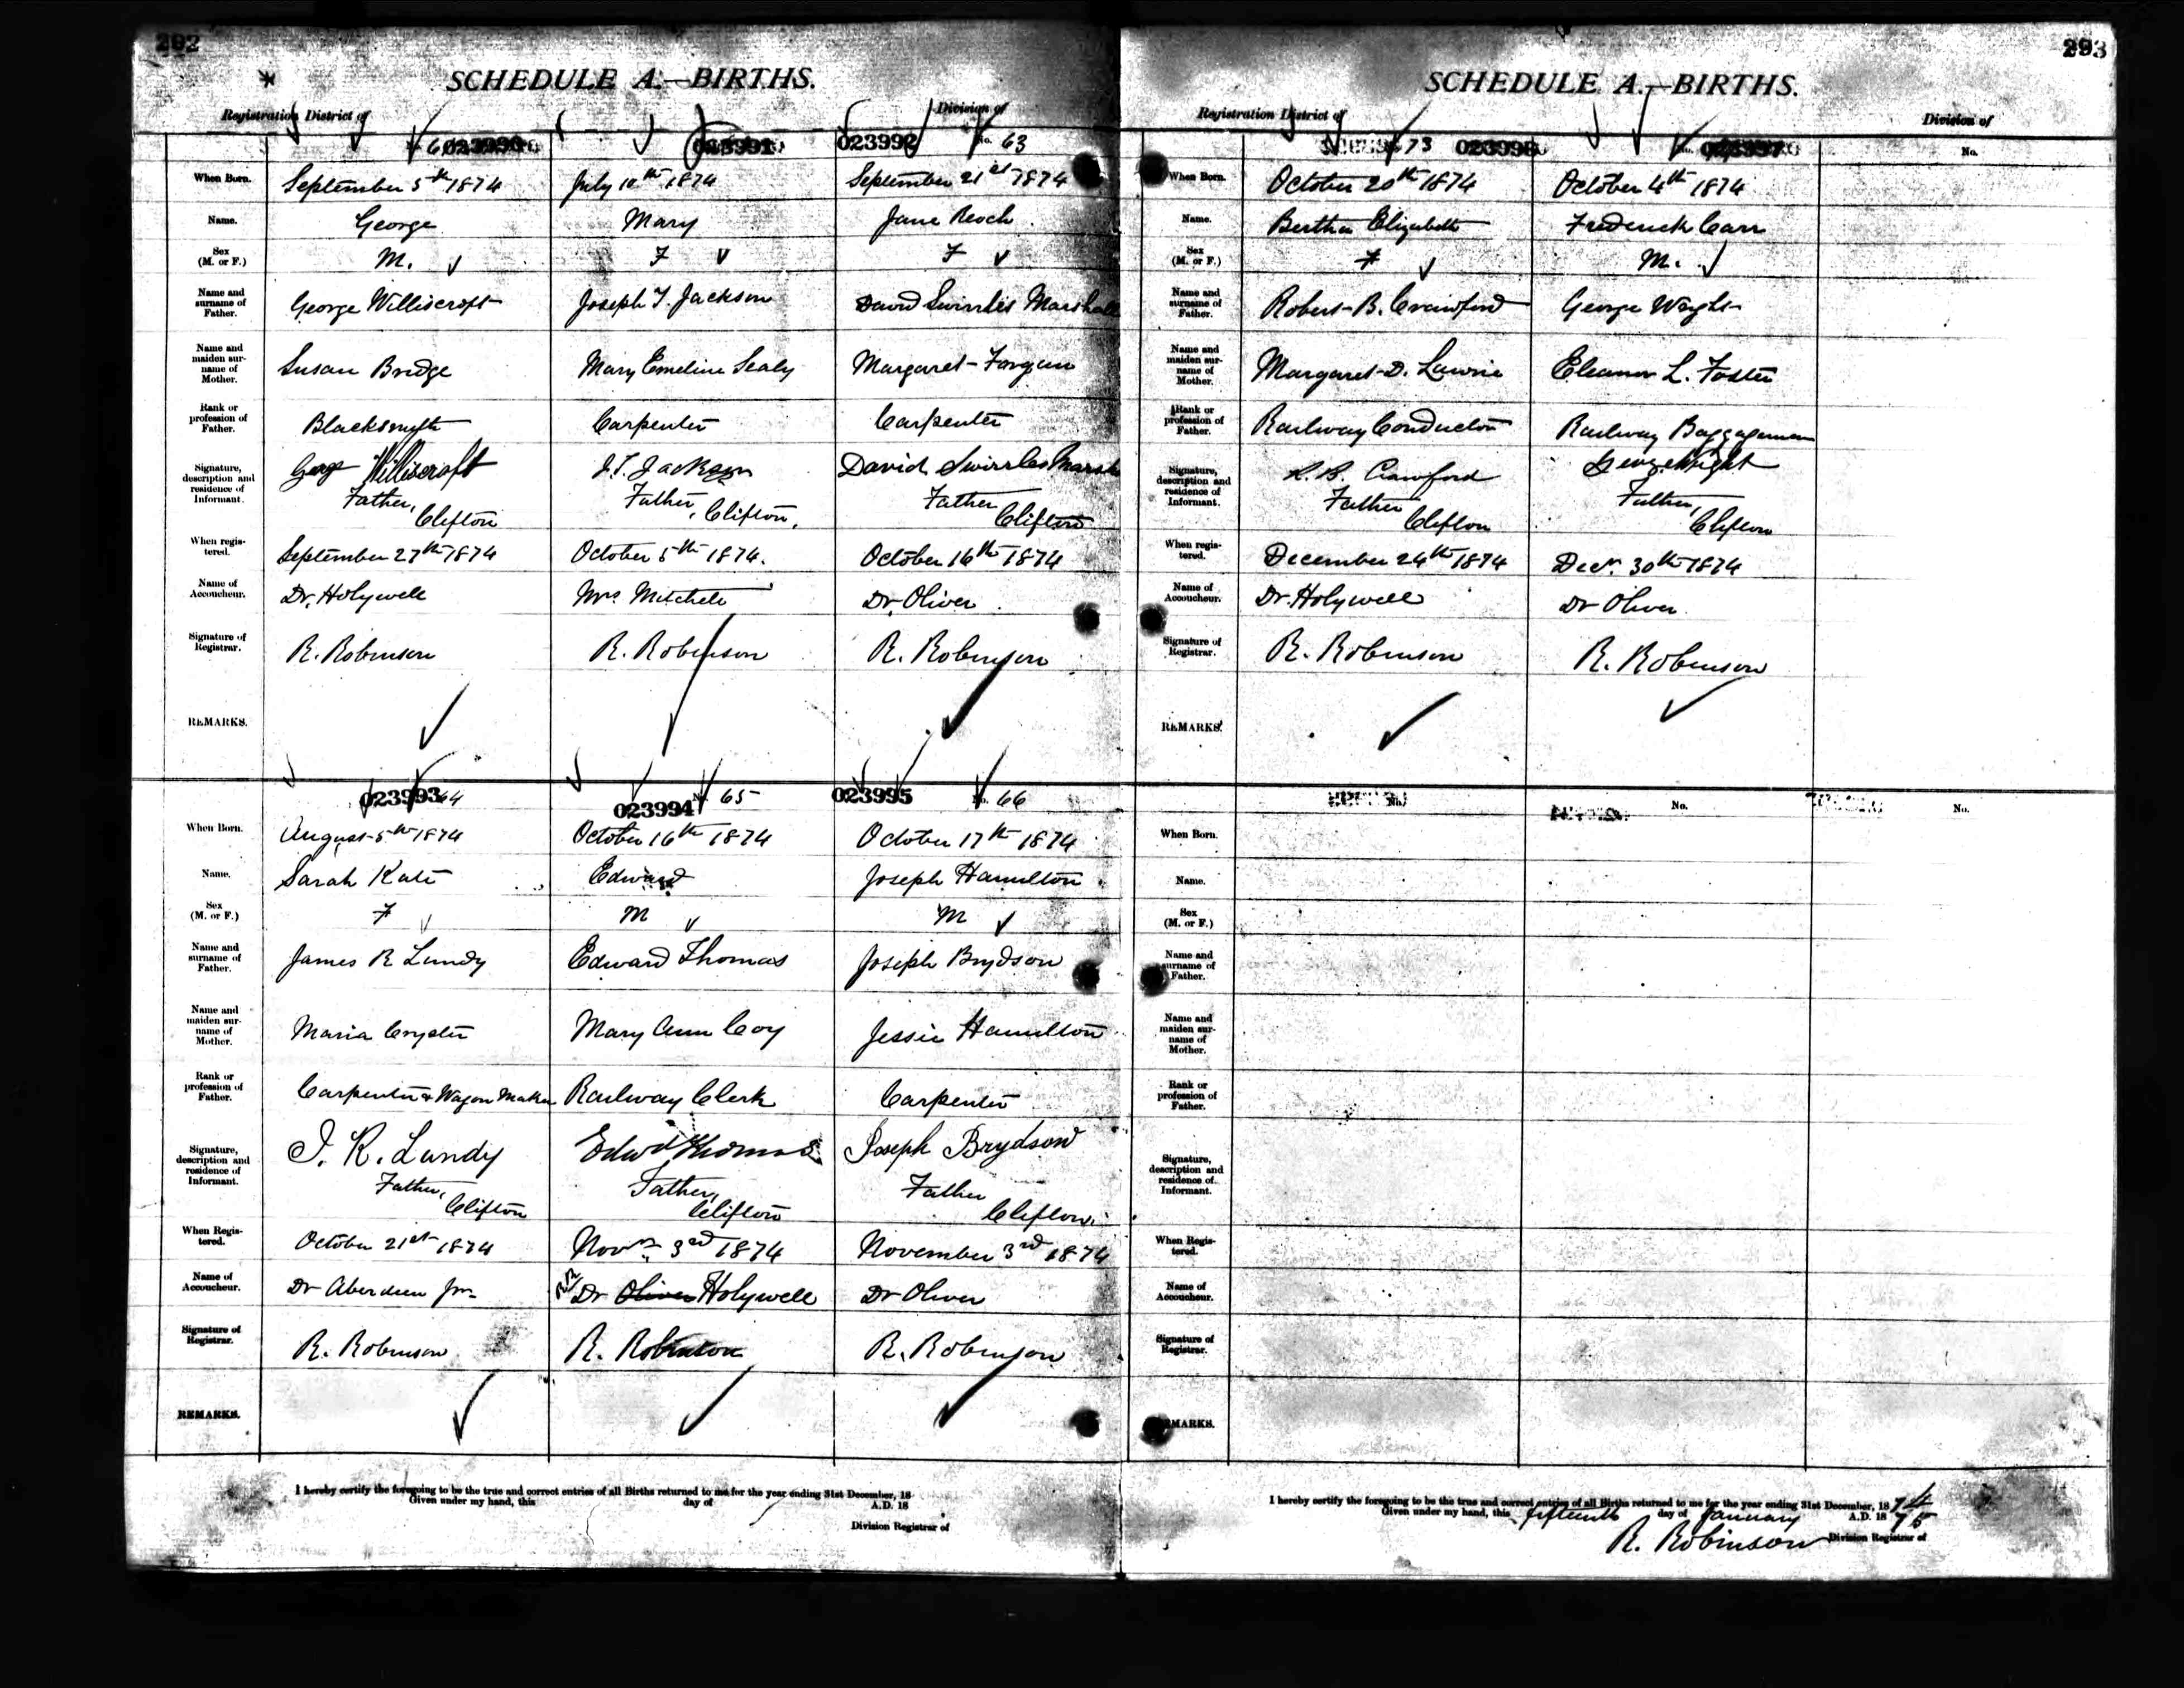 292
SCHEDULE A.—BIRTHS.
Registration District of
Division of
023990
023991
023992 No. 63
When Born. September 5th 1874 July 10th 1874 September 21st 1874
Name. George Mary Jane Reoch
Sex (M. or F.) M. F F
Name and surname of Father. George Williscroft Joseph T. Jackson David Swirrles Marshall
Name and maiden surname of Mother. Susan Bridge Mary Emeline Sealy Margaret
Rank or profession of Father. Blacksmyth Carpenter Carpenter
Signature, description and residence of Informant. George Williscroft J. T. Jackson David Swirrles Marsh
Father, Father, Father
Clifton Clifton, Clifton
When registered. September 27th 1874 October 5th 1874. October 16th 1874
Name of Accoucheur. Dr. Holywell Mrs. Mitchell Dr. Oliver
Signature of Registrar. R. Robinson R. Robinson R. Robinson
REMARKS.
023993 64 023994 65 023995 No. 66
When Born. August 5th 1874 October 16th 1874 October 17th 1874
Name. Sarah Kate Edward Joseph Hamilton
Sex (M. or F.) F M M
Name and surname of Father. James R Lundy Edward Thomas Joseph Brydson
Name and maiden surname of Mother. Maria Crysler Mary Ann Coy Jessie Hamilton
Rank or profession of Father. Carpenter & Wagon Maker Railway Clerk Carpenter
Signature, description and residence of Informant. J. R. Lundy Edwd Thomas Joseph Brydson
Father, Father, Father
Clifton Clifton Clifton.
When Registered. October 21st 1874 Novr. 3rd 1874 November 3rd 1874
Name of Accoucheur. Dr Aberdeen Jr. RR Dr Oliver Holywell Dr Oliver
Signature of Registrar. R. Robinson R. Robinson R. Robinson
REMARKS.
I hereby certify the foregoing to be the true and correct entries of all Births returned to me for the year ending 31st December, 18
Given under my hand, this day of A.D. 18
Division Registrar of
293
SCHEDULE A.—BIRTHS.
Registration District of
Division of
73 023996 023997 No.
When Born. October 20th 1874 October 4th 1874
Name. Bertha Elizabeth Frederick Carr
Sex (M. or F.) F M.
Name and surname of Father. Robert B. Crawford George Wright
Name and maiden surname of Mother. Margaret D. Lawrie Eleanor L. Foster
Rank or profession of Father. Railway Conductor Railway Baggageman
Signature, description and residence of Informant. R. B. Crawford George Wright
Father Father,
Clifton Clifton
When registered. December 24th 1874 Decr. 30th 1874
Name of Accoucheur. Dr. Holywell Dr Oliver
Signature of Registrar. R. Robinson R. Robinson
REMARKS.
No. No. No.
When Born.
Name.
Sex (M. or F.)
Name and surname of Father.
Name and maiden surname of Mother.
Rank or profession of Father.
Signature, description and residence of Informant.
When Registered.
Name of Accoucheur.
Signature of Registrar.
REMARKS.
I hereby certify the foregoing to be the true and correct entries of all Births returned to me for the year ending 31st December, 1874
Given under my hand, this fifteenth day of January A.D. 1875
R. Robinson Division Registrar of